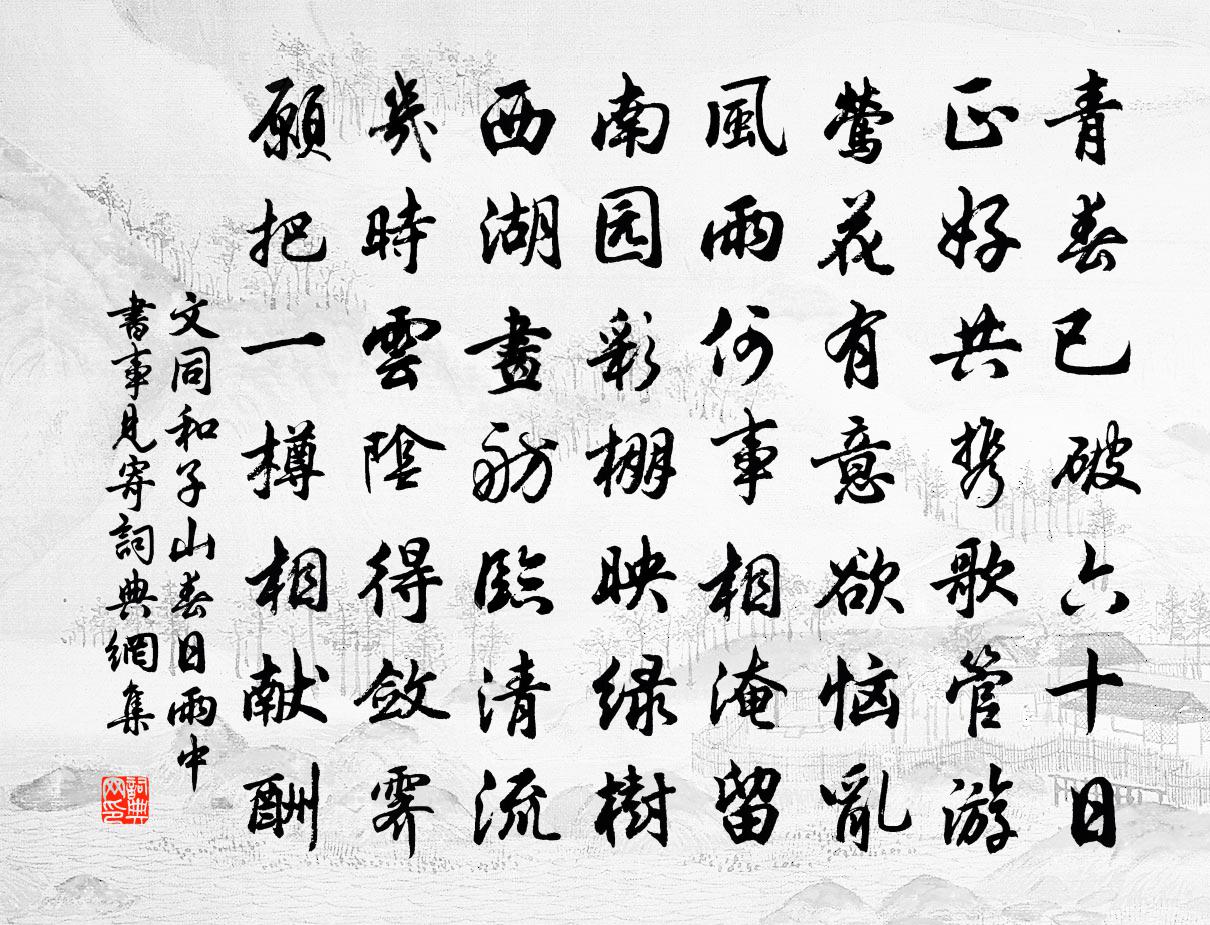 青春已破六十日
正好共携歌管游
莺花有意欲恼亂
風雨何事相淹留
南园彩棚映绿樹
西湖畫舫臨清流
幾時雲陰得斂霁
願把一樽相献酬
文同和子山春日雨中
書事見寄詞典網集
詞典网印